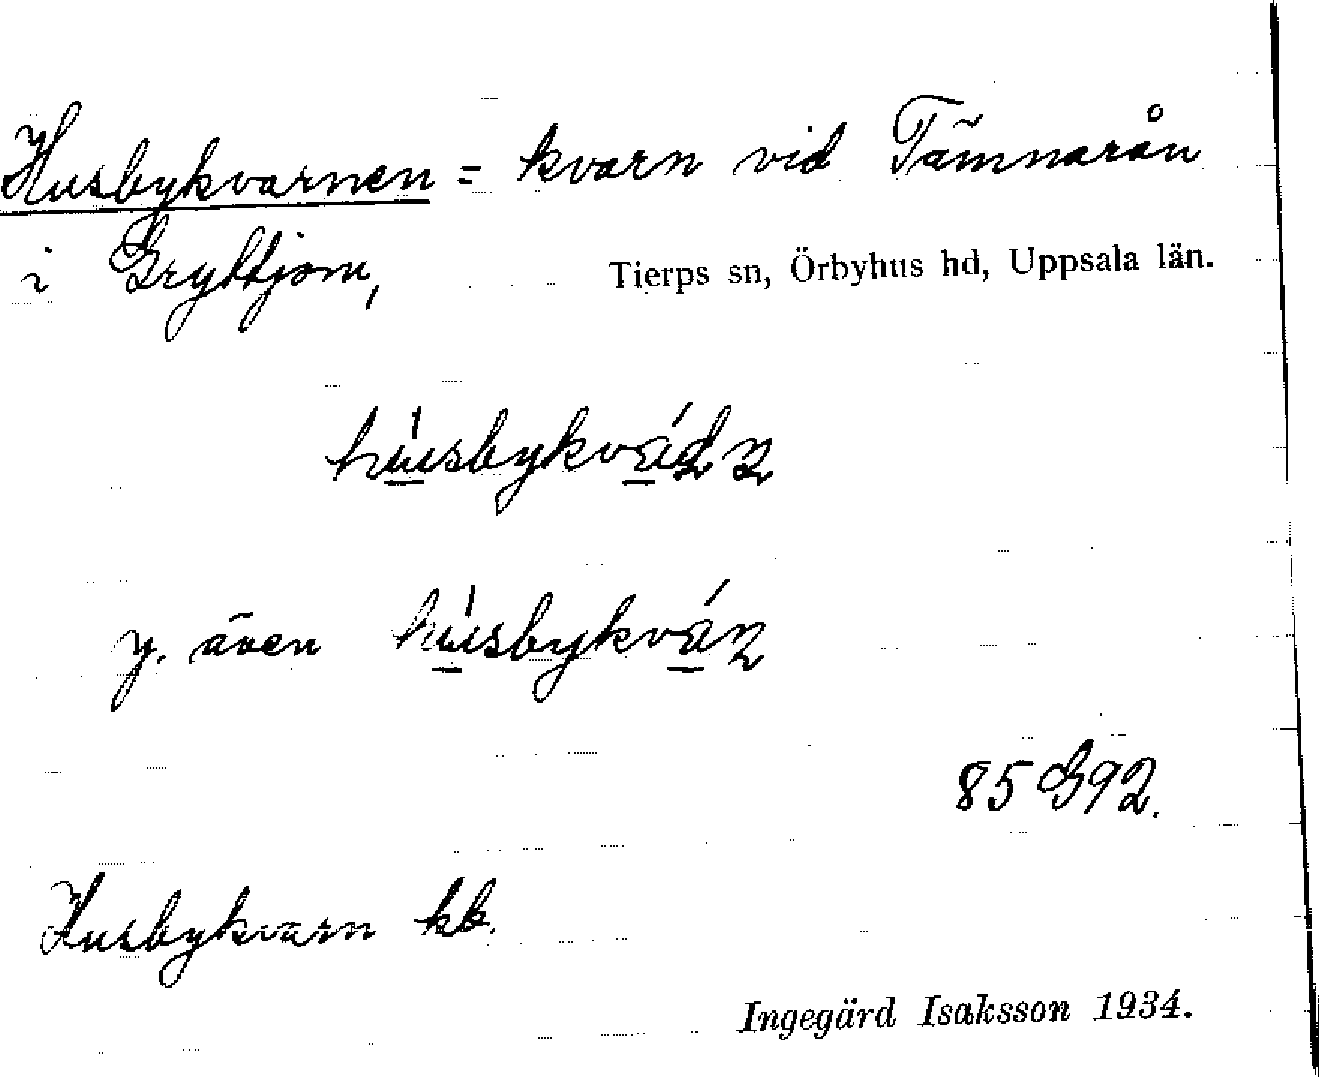 Husbykvarnen = kvarn vid Tämnarån
i Gryttjom, Tierps sn, Örbyhus hd, Uppsala län.
y. även
85 G92.
Husbykvarn kb.
Ingegärd Isaksson 1934.